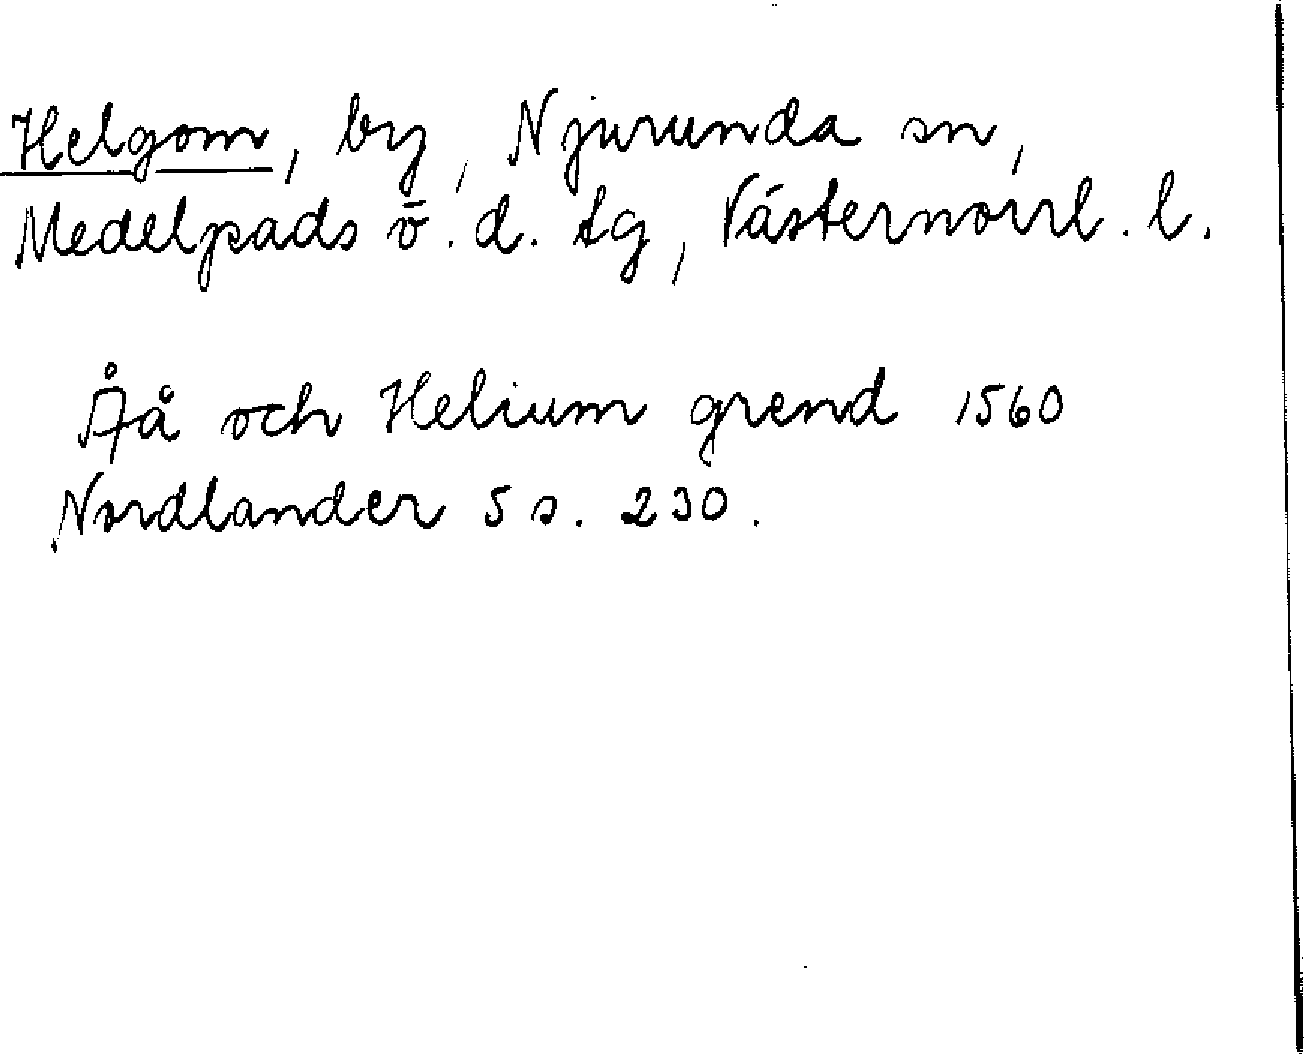 Helgom, by, Njurunda sn,
Medelpads ö. d. tg, Västernorrl. l.
Åå och Helium grend 1560
Nordlander 5 s. 230.